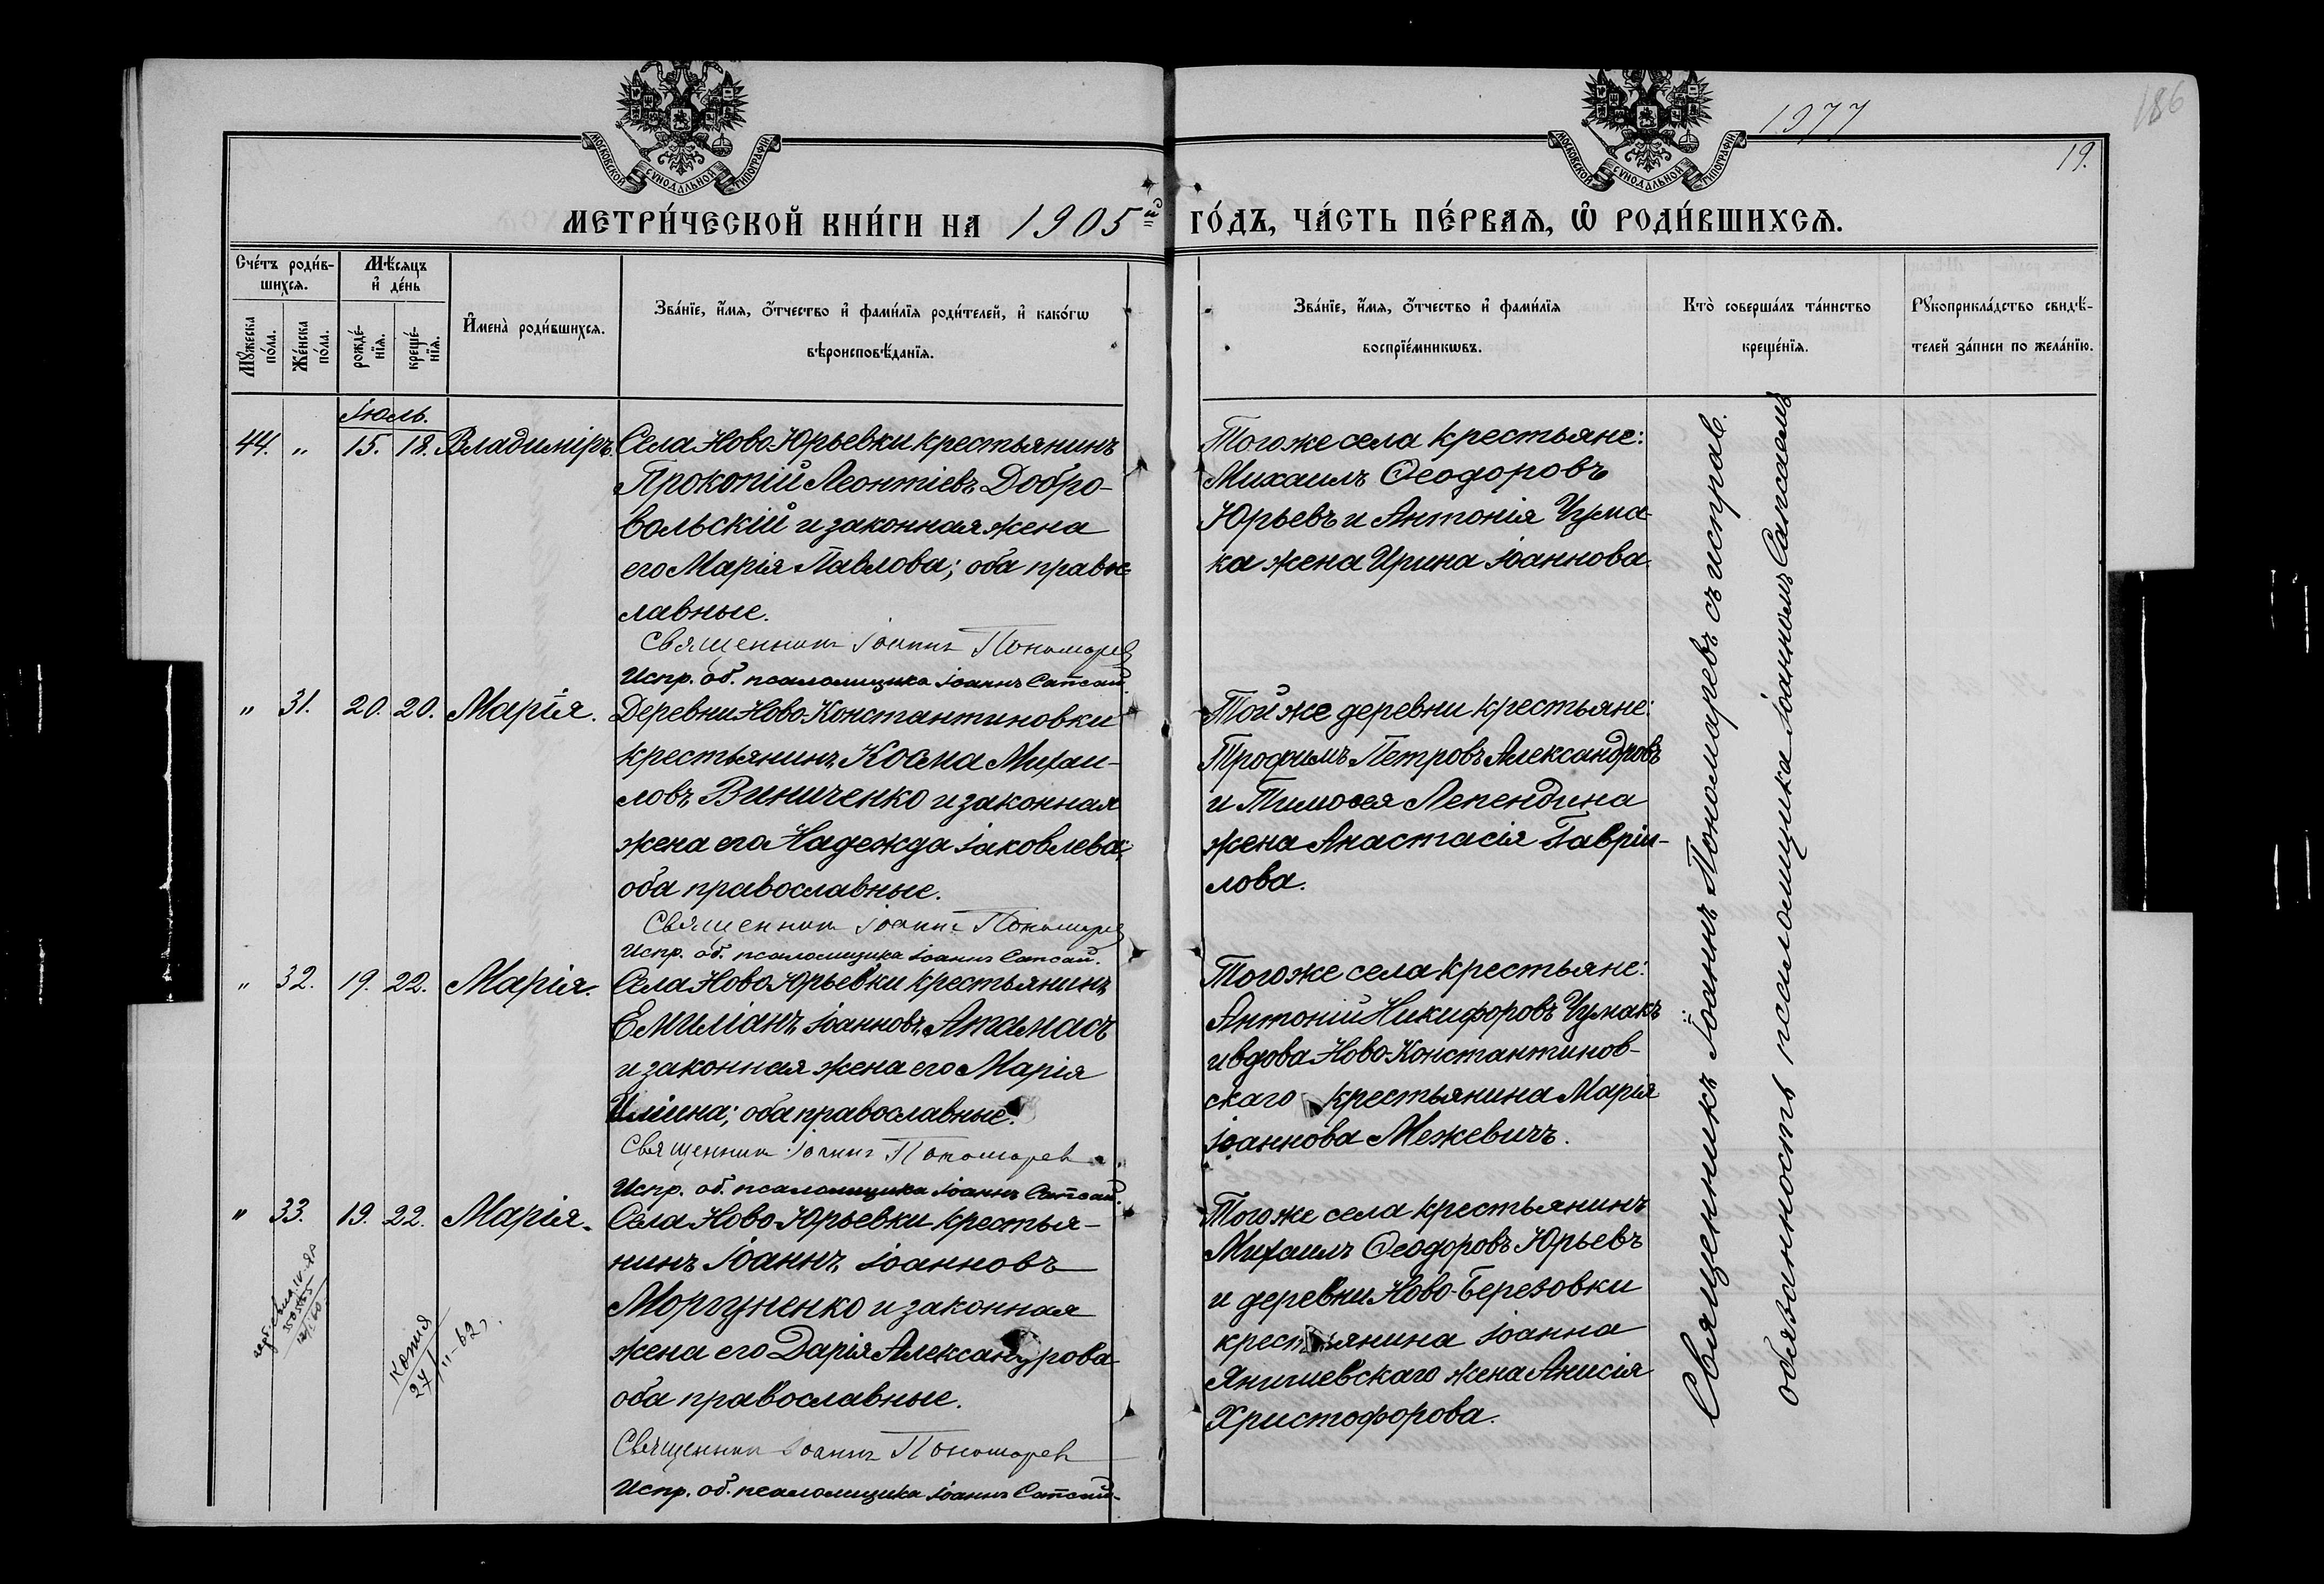 МОСКОВСКОЙ СѴНОДАЛЬНОЙ ТИПОГРАФІИ
МОСКОВСКОЙ СѴНОДАЛЬНОЙ ТИПОГРАФІИ
1977
186
19.
МЕТРИ́ЧЕСКОЙ КНИ́ГИ НА 1905й ГО́ДЪ, ЧА́СТЬ ПЕ́РВАѦ, Ѿ РОДИ́ВШИХСѦ.
Сче́тъ роди́в-
шихсѧ.
Мꙋжеска по́ла.
Же́нска по́ла.
Мѣ́сѧцъ
и҆ де́нь
рожде́-
нїѧ.
креще́-
нїѧ.
И҆мена̀ роди́вшихсѧ.
Зва́нїе, и҆́мѧ, о҆́тчество и҆ фами́лїѧ роди́телей, и҆ како́гѡ
вѣроисповѣ́данїѧ.
Зва́нїе, и҆́мѧ, о҆́тчество и҆ фами́лїѧ
воспрїе́мникѡвъ.
Кто̀ соверша́лъ та́инство
креще́нїѧ.
Рꙋкоприкла́дство свидѣ́-
телей за́писи по жела́нїю.
Іюль.
44. „ 15. 18. Владиміръ.
Села Ново-Юрьевки крестьянинъ
Прокопій Леонтіевъ Добро-
вольскій и законная жена
его Марія Павлова; оба право-
славные.
Священникъ Іоаннъ Пономарев
Испр. об. псаломщика Іоаннъ Сапсай.
Того же села крестьяне:
Михаилъ Ѳеодоровъ
Юрьевъ и Антонія Чума-
ка жена Ирина Іоаннова.
„ 31. 20. 20. Марія.
Деревни Ново-Константиновки
крестьянинъ Косма Михаи-
ловъ Виниченко и законная
жена его Надежда Іаковлева;
оба православные.
Священникъ Іоаннъ Пономарев
Испр. об. псаломщика Іоаннъ Сапсай.
Той же деревни крестьяне:
Трофимъ Петровъ Александровъ
и Тимоѳея Лепендина
жена Анастасія Гавріи-
лова.
„ 32. 19. 22. Марія.
Села Ново-Юрьевки крестьянинъ
Емиліанъ Іоанновъ Атамасъ
и законная жена его Марія
Иліина; оба православные.
Священникъ Іоаннъ Пономарев
Испр. об. псаломщика Іоаннъ Сапсай.
Того же села крестьяне:
Антоній Никифоровъ Чумакъ
и вдова Ново-Константинов-
скаго крестьянина Марія
Іоаннова Межевичъ.
„ 33. 19. 22. Марія.
Села Ново-Юрьевки крестья-
нинъ Іоаннъ Іоанновъ
Моргуненко и законная
жена его Дарія Александрова
оба православные.
Священникъ Іоаннъ Пономарев
Испр. об. псаломщика Іоаннъ Сапсай.
Того же села крестьянинъ
Михаилъ Ѳеодоровъ Юрьевъ
и деревни Ново-Березовки
крестьянина Іоанна
Янишевскаго жена Анисія
Христофорова.
копия
27/II-62
Священникъ Іоаннъ Пономаревъ съ исправ.
обязанность псаломщика Іоанномъ Сапсаемъ